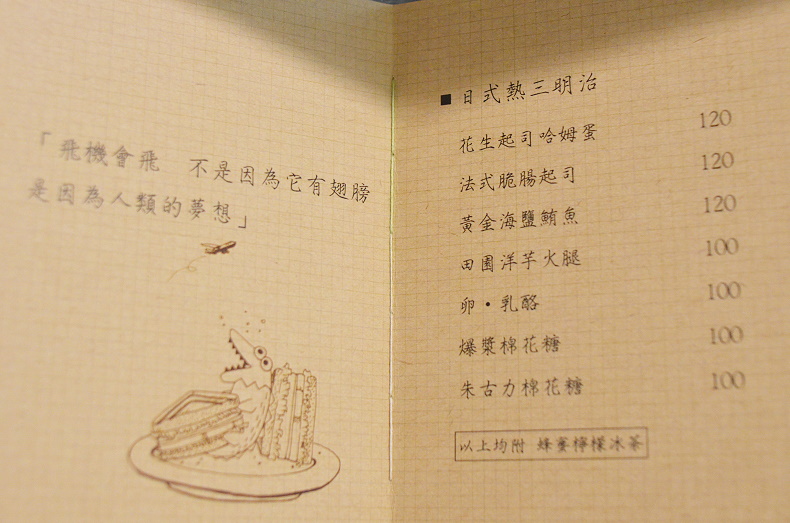 「飛機會飛　不是因為它有翅膀
是因為人類的夢想」
■日式熱三明治
花生起司哈姆蛋 120
法式脆腸起司 120
黃金海鹽鮪魚 120
田園洋芋火腿 100
卵・乳酪 100
爆漿棉花糖 100
朱古力棉花糖 100
以上均附 蜂蜜檸檬冰茶